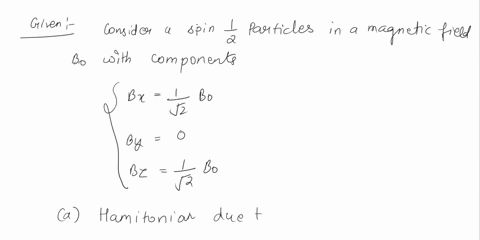 Given:- Consider a spin 1/2 Particles in a magnetic field
B0 with components
Bx = 1/√2 B0
By = 0
Bz = 1/√2 B0
(a) Hamitonian due t